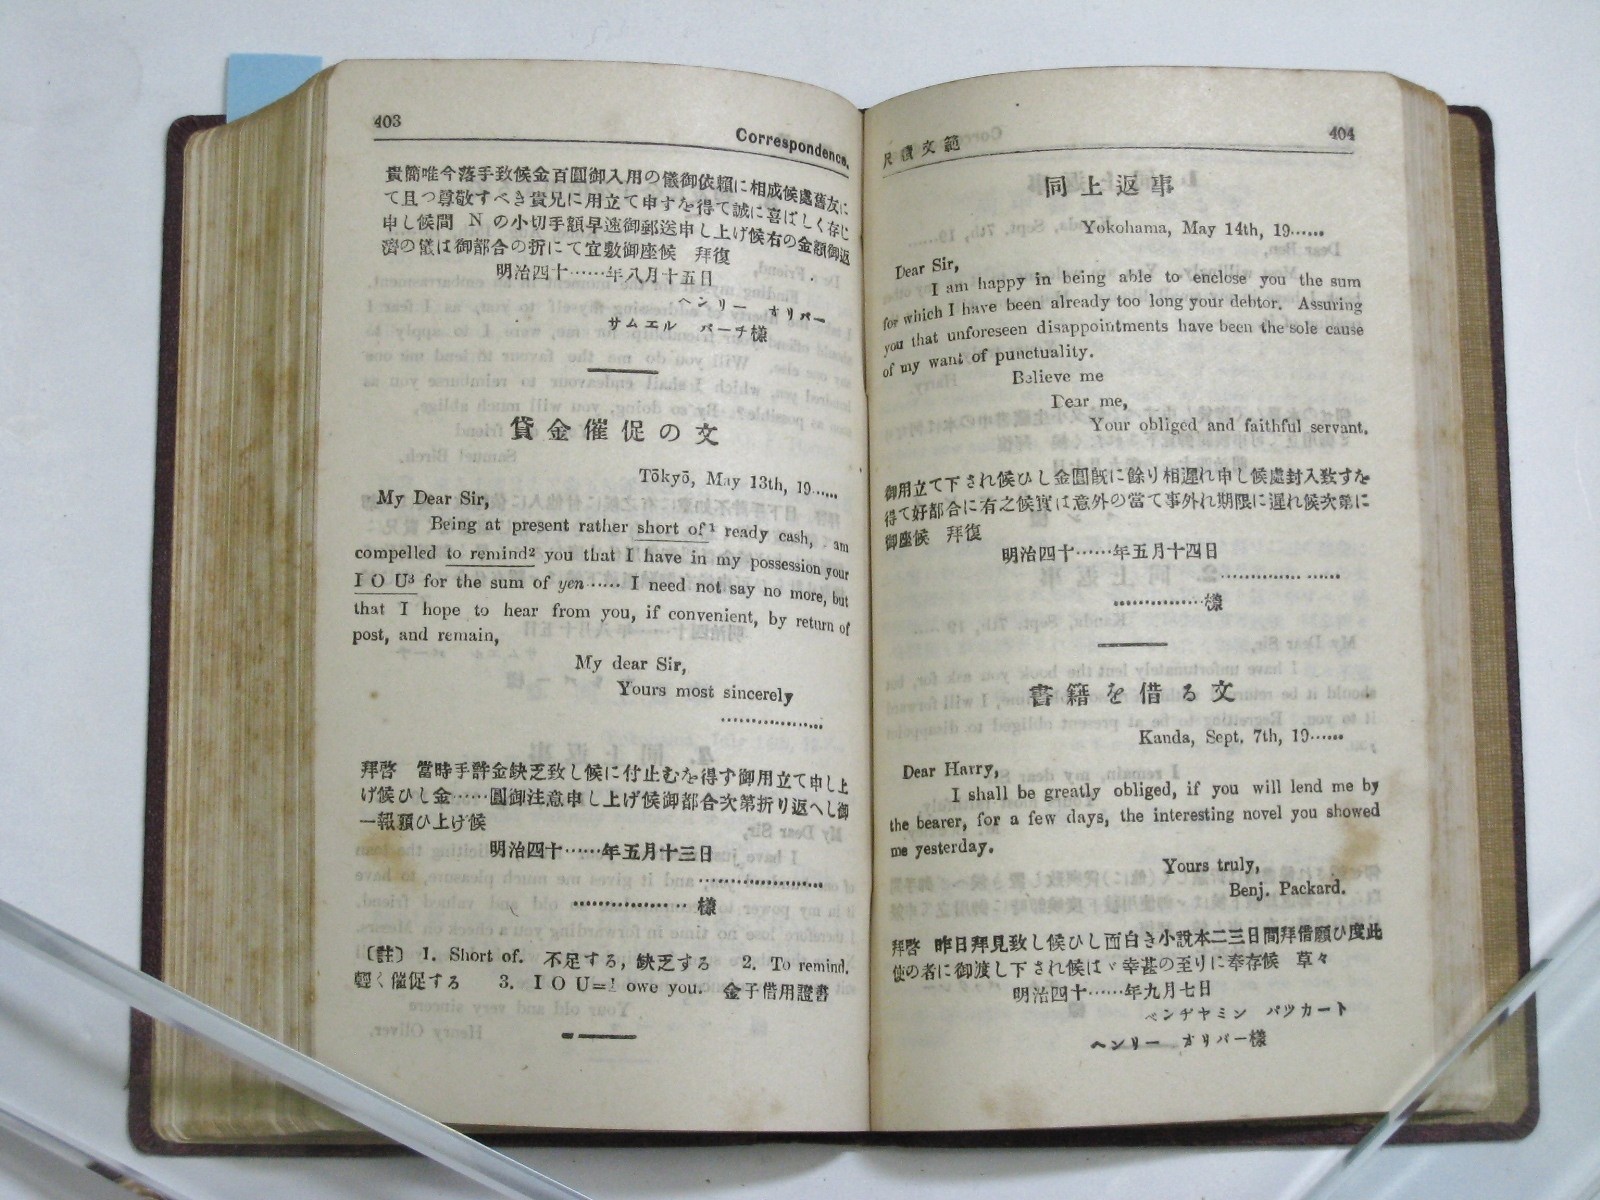 403
Correspondence.
貴簡唯今落手致候金百圓御入用の儀御依賴に相成候處舊友に
て且つ尊敬すべき貴兄に用立て申すを得て誠に喜ばしく存じ
申し候間 N の小切手額早速御郵送申し上げ候右の金額御返
濟の儀は御都合の折にて宜敷御座候 拜復
明治四十……年八月十五日
ヘンリー オリバー
サムエル バーチ樣
貸金催促の文
Tōkyō, May 13th, 19......
My Dear Sir,
Being at present rather short of¹ ready cash, am
compelled to remind² you that I have in my possession your
I O U³ for the sum of yen ...... I need not say no more, but
that I hope to hear from you, if convenient, by return of
post, and remain,
My dear Sir,
Yours most sincerely
.....................
拜啓 當時手許金缺乏致し候に付止むを得ず御用立て申し上
げ候ひし金……圓御注意申し上げ候御都合次第折り返へし御
一報願ひ上げ候
明治四十……年五月十三日
.....................
.....................樣
〔註〕 1. Short of. 不足する, 缺乏する 2. To remind.
輕く催促する 3. I O U=I owe you. 金子借用證書
尺牘文範
404
同上返事
Yokohama, May 14th, 19......
Dear Sir,
I am happy in being able to enclose you the sum
for which I have been already too long your debtor. Assuring
you that unforeseen disappointments have been the sole cause
of my want of punctuality.
Believe me
Dear me,
Your obliged and faithful servant.
御用立て下され候ひし金圓既に餘り相遲れ申し候處封入致すを
得て好都合に有之候實は意外の當て事外れ期限に遲れ候次第に
御座候 拜復
明治四十……年五月十四日
.....................
.....................樣
書籍を借る文
Kanda, Sept. 7th, 19......
Dear Harry,
I shall be greatly obliged, if you will lend me by
the bearer, for a few days, the interesting novel you showed
me yesterday.
Yours truly,
Benj. Packard.
拜啓 昨日拜見致し候ひし面白き小說本二三日間拜借願ひ度此
使の者に御渡し下され候はゞ幸甚の至りに奉存候 草々
明治四十……年九月七日
ベンヂヤミン パツカート
ヘンリー オリバー樣